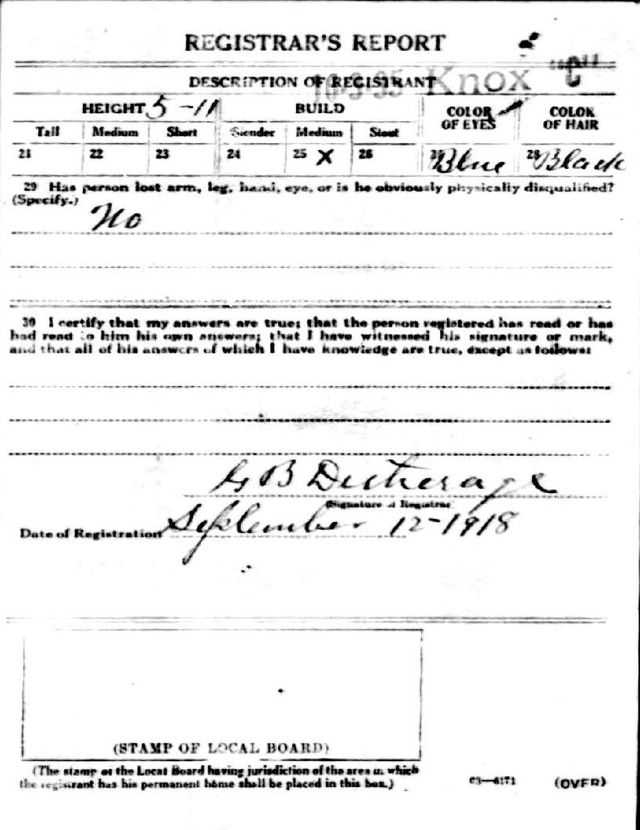 REGISTRAR'S REPORT
DESCRIPTION OF REGISTRANT Knox "C"
HEIGHT 5-11 BUILD COLOR OF EYES COLOR OF HAIR
Tall Medium Short Slender Medium Stout
21 22 23 24 25 X 26 Blue 28 Black
29 Has person lost arm, leg, hand, eye, or is he obviously physically disqualified?
(Specify.)
No
30 I certify that my answers are true; that the person registered has read or has
had read to him his own answers; that I have witnessed his signature or mark,
and that all of his answers of which I have knowledge are true, except as follows:
G B Detherage
(Signature of Registrar)
Date of Registration September 12-1918
(STAMP OF LOCAL BOARD)
(The stamp of the Local Board having jurisdiction of the area in which
the registrant has his permanent home shall be placed in this box.)
03—6171 (OVER)